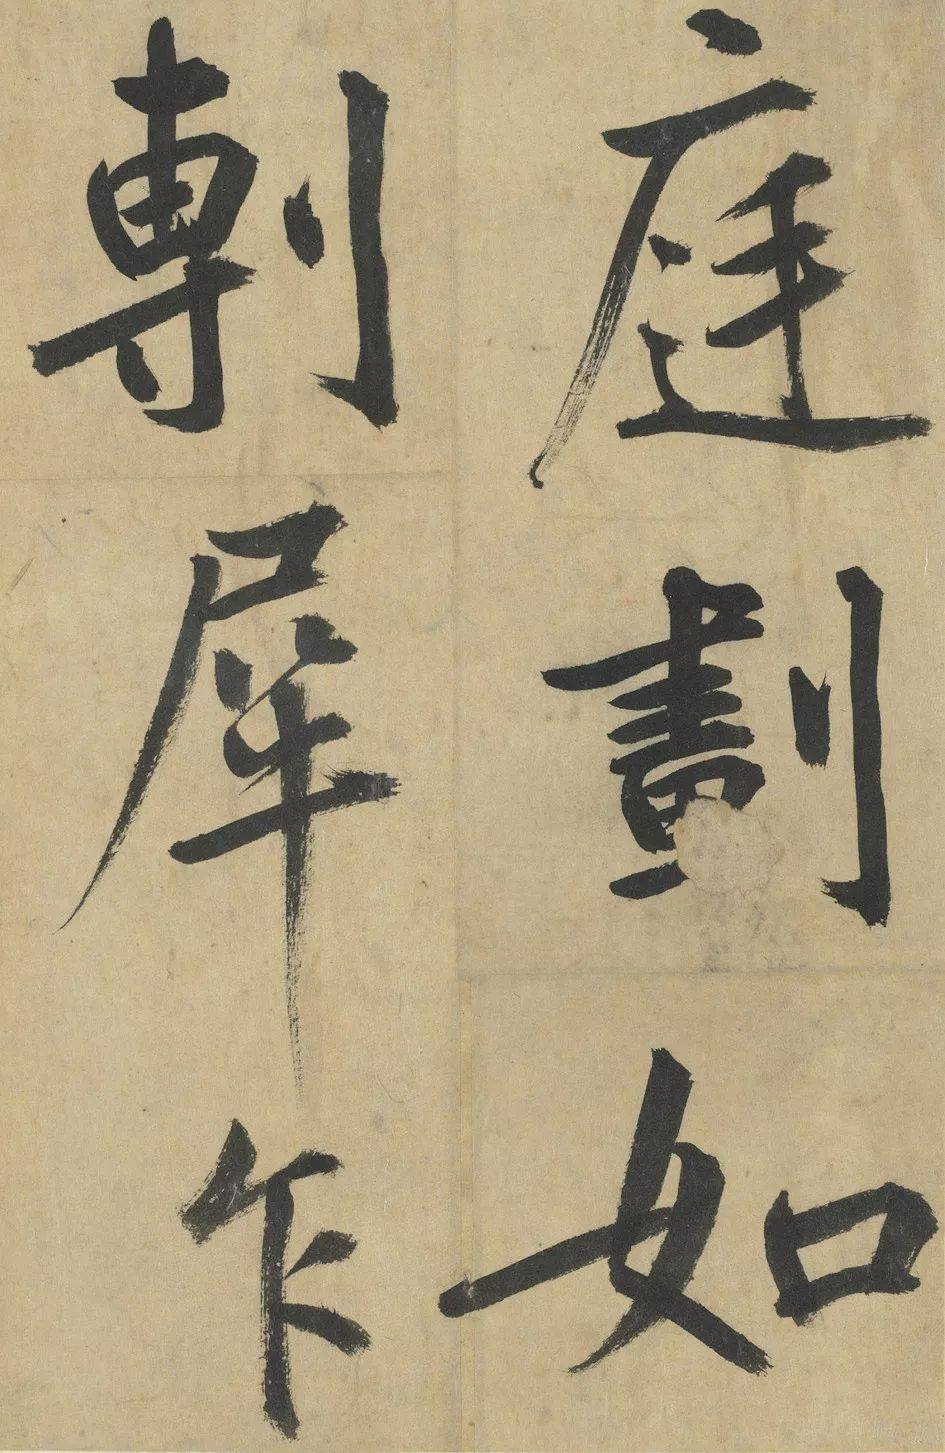 庭劃如
剸犀乍